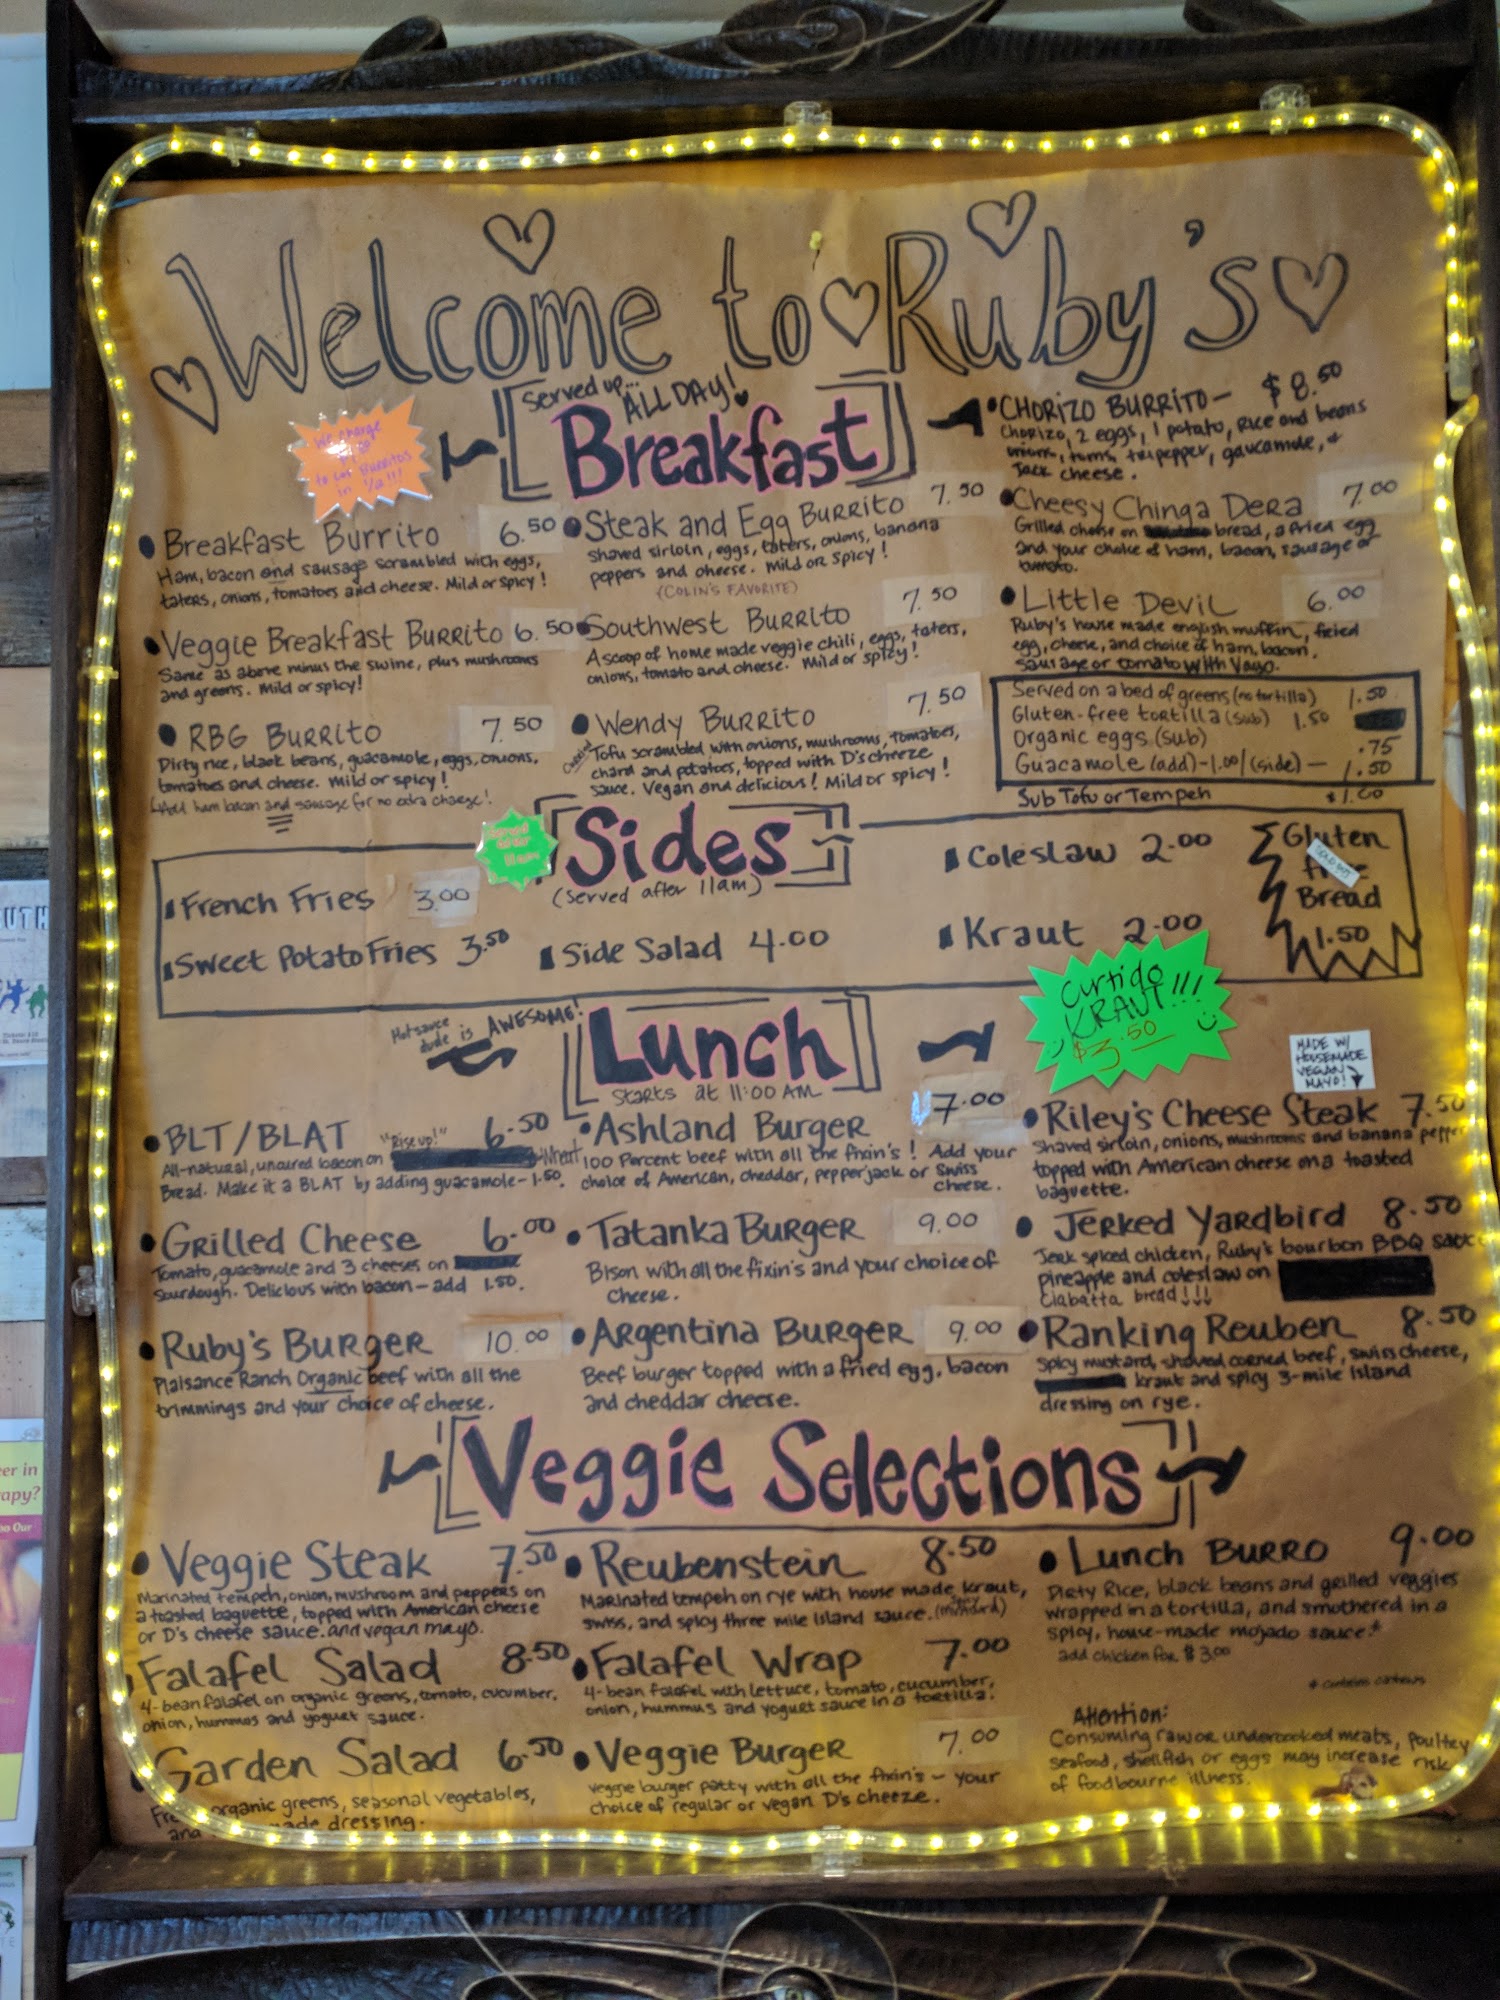 Welcome to Ruby's
Served up...
ALL DAY!
Breakfast
We charge
to cut Burritos
in 1/2!!!
• Breakfast Burrito 6.50
Ham, bacon and sausage scrambled with eggs,
taters, onions, tomatoes and cheese. Mild or spicy!
• Veggie Breakfast Burrito 6.50
Same as above minus the swine, plus mushrooms
and greens. Mild or spicy!
• RBG Burrito 7.50
Dirty rice, black beans, guacamole, eggs, onions,
tomatoes and cheese. Mild or spicy!
Add ham bacon and sausage for no extra charge!
• Steak and Egg Burrito 7.50
Shaved sirloin, eggs, taters, onions, banana
peppers and cheese. Mild or spicy!
(COLIN'S FAVORITE)
• Southwest Burrito 7.50
A scoop of home made veggie chili, eggs, taters,
onions, tomato and cheese. Mild or spicy!
• Wendy Burrito 7.50
Tofu scrambled with onions, mushrooms, tomatoes,
chard and potatoes, topped with D's cheeze
sauce. Vegan and delicious! Mild or spicy!
• CHORIZO BURRITO — $8.50
Chorizo, 2 eggs, 1 potato, Rice and beans
onion, toms, pepper, guacamole, +
Jack cheese.
• Cheesy Chinga Dera 7.00
Grilled cheese on bread, a fried egg
and your choice of ham, bacon, sausage or
tomato.
• Little Devil 6.00
Ruby's house made english muffin, fried
egg, cheese, and choice of ham, bacon,
sausage or tomato with Vayo.
Served on a bed of greens (no tortilla) 1.50
Gluten-free tortilla (sub) 1.50
Organic eggs (sub) .75
Guacamole (add) - 1.00/(side) — 1.50
Sub Tofu or Tempeh $1.00
Served
after
11am
Sides
(Served after 11am)
French Fries 3.00
Sweet Potato Fries 3.50
Side Salad 4.00
Coleslaw 2.00
Kraut 2.00
Gluten
Free
Bread
1.50
SOLD OUT
Curtido
KRAUT!!!
$3.50
Hot sauce
dude is AWESOME!
Lunch
Starts at 11:00 AM
MADE W/
HOUSEMADE
VEGAN
MAYO!
• BLT/BLAT 6.50
All-natural, uncured bacon on "Rise up!" Wheat
Bread. Make it a BLAT by adding guacamole - 1.50.
• Grilled Cheese 6.00
Tomato, guacamole and 3 cheeses on
Sourdough. Delicious with bacon — add 1.50.
• Ruby's Burger 10.00
Plaisance Ranch Organic beef with all the
trimmings and your choice of cheese.
• Ashland Burger 7.00
100 Percent beef with all the fixin's! Add your
choice of American, cheddar, pepperjack or Swiss
cheese.
• Tatanka Burger 9.00
Bison with all the fixin's and your choice of
cheese.
• Argentina Burger 9.00
Beef burger topped with a fried egg, bacon
and cheddar cheese.
• Riley's Cheese Steak 7.50
Shaved sirloin, onions, mushrooms and banana pepper
topped with American cheese on a toasted
baguette.
• Jerked Yardbird 8.50
Jerk spiced chicken, Ruby's bourbon BBQ sauce
pineapple and coleslaw on
Ciabatta bread!!!
• Ranking Reuben 8.50
Spicy mustard, shaved corned beef, swiss cheese,
kraut and spicy 3-mile Island
dressing on rye.
Veggie Selections
• Veggie Steak 7.50
Marinated tempeh, onion, mushroom and peppers on
a toasted baguette, topped with American cheese
or D's cheese sauce. and vegan mayo.
Falafel Salad 8.50
4-bean falafel on organic greens, tomato, cucumber,
onion, hummus and yogurt sauce.
Garden Salad 6.50
organic greens, seasonal vegetables,
and dressing.
• Reubenstein 8.50
Marinated tempeh on rye with house made kraut,
swiss, and spicy three mile Island sauce. (mustard)
• Falafel Wrap 7.00
4-bean falafel with lettuce, tomato, cucumber,
onion, hummus and yogurt sauce in a tortilla.
• Veggie Burger 7.00
Veggie burger patty with all the fixin's — your
choice of regular or vegan D's cheeze.
• Lunch Burro 9.00
Dirty Rice, black beans and grilled veggies
wrapped in a tortilla, and smothered in a
spicy, house-made mojado sauce.*
add chicken for $3.00
* contains cashews
Attention:
Consuming raw or undercooked meats, poultry
seafood, shellfish or eggs may increase risk
of foodbourne illness.